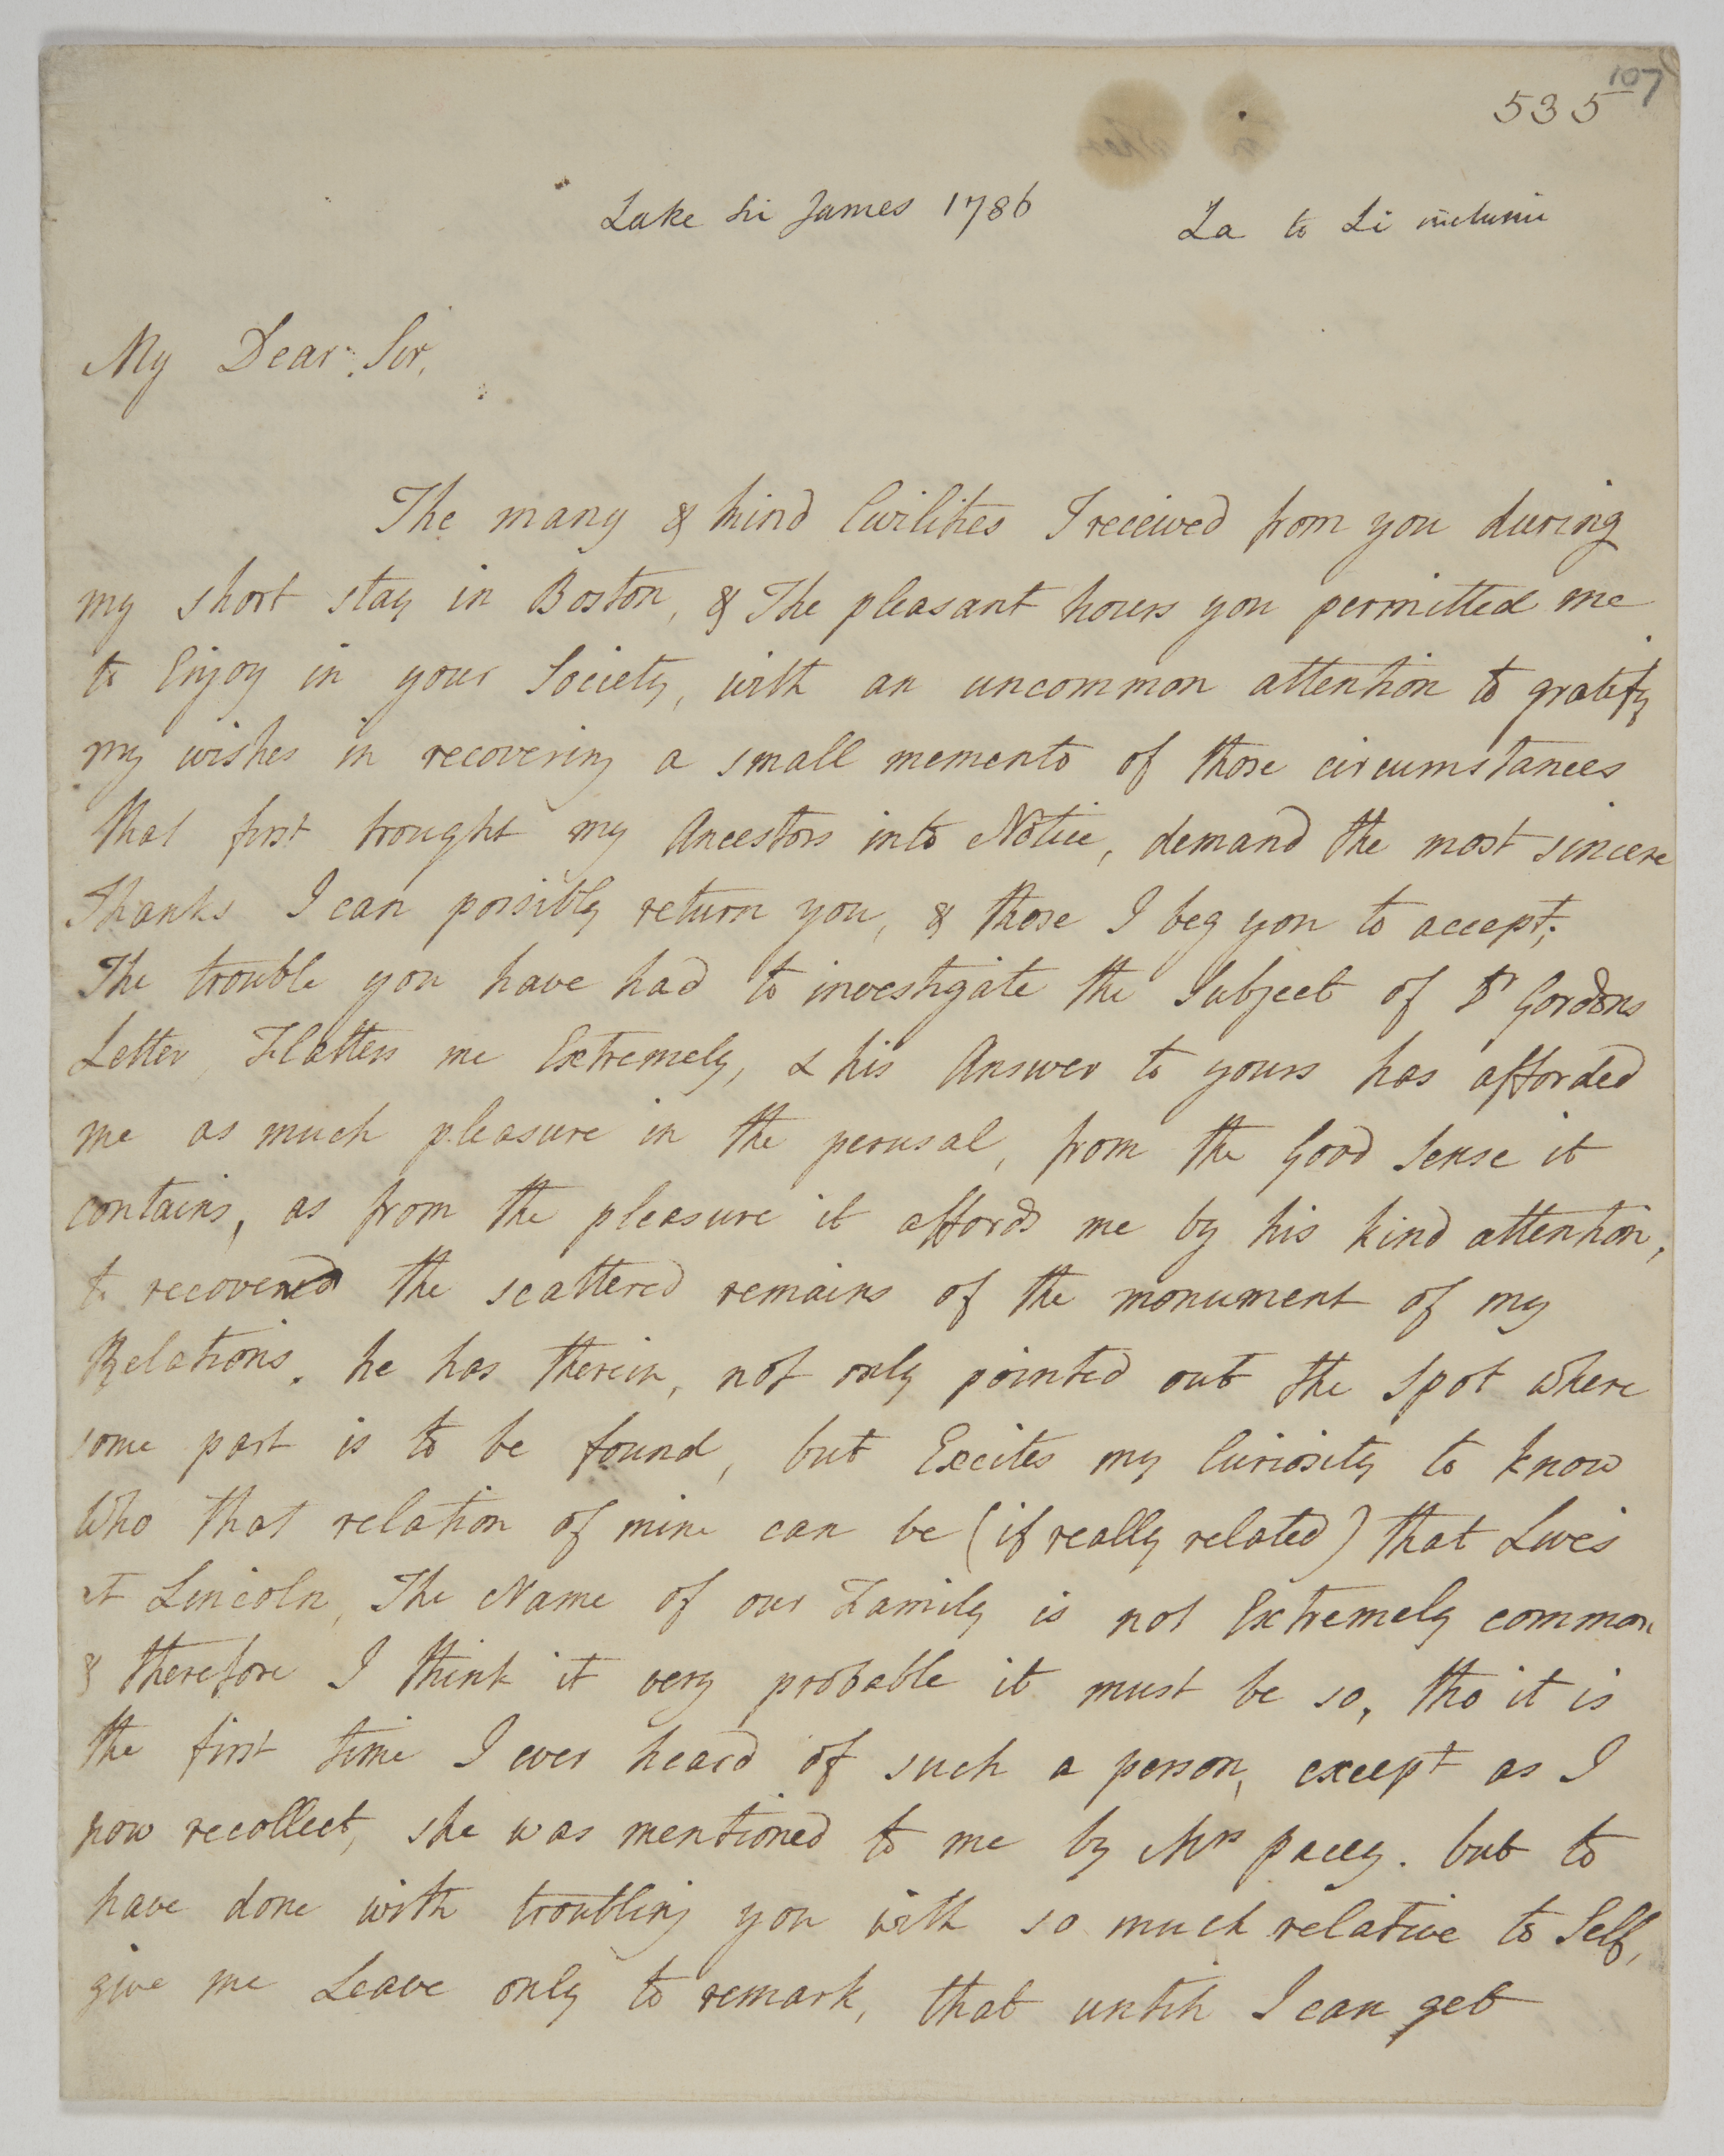 107
535
Lake Sir James 1786
La to Li inclusive
My Dear Sir,
The many & kind Civilities I received from you during
my short stay in Boston, & The pleasant hours you permitted me
to Enjoy in your Society, with an uncommon attention to gratify
my wishes in recovering a small memento of those circumstances
that first brought my Ancestors into Notice, demand the most sincere
Thanks I can possibly return you, & those I beg you to accept;
The trouble you have had to investigate the Subject of Dr Gordons
Letter, Flatters me Extremely, & his Answer to yours has afforded
me as much pleasure in the perusal, from the Good Sense it
contains, as from the pleasure it affords me by his kind attention,
to recovered the scattered remains of the monument of my
Relations. he has therein, not only pointed out the Spot where
some part is to be found, but Excites my Curiosity to know
Who that relation of mine can be (if really related) that Lives
at Lincoln, The Name of our Family is not Extremely common
& therefore I think it very probable it must be so, tho it is
the first time I ever heard of such a person, except as I
now recollect, she was mentioned to me by Mrs pacey. but to
have done with troubling you with so much relative to Self,
give me Leave only to remark, that untill I can get